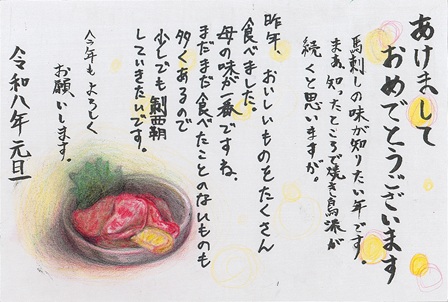 あけまして
おめでとうございます
馬刺しの味が知りたい年です。
まあ、知ったところで焼き鳥派が
続くと思いますが。
昨年、おいしいものをたくさん
食べました。
母の味が一番ですね、
まだまだ食べたことのないものも
多くあるので
少しでも制覇
していきたいです。
今年もよろしく
お願いします。
令和八年 元旦